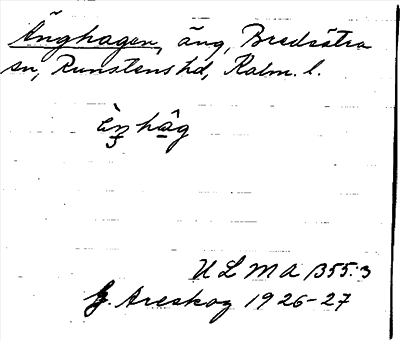 Änghagen, äng, Bredsätra
sn, Runstens hd, Kalm. l.
ULMA B55:3
G. Areskog 1926-27